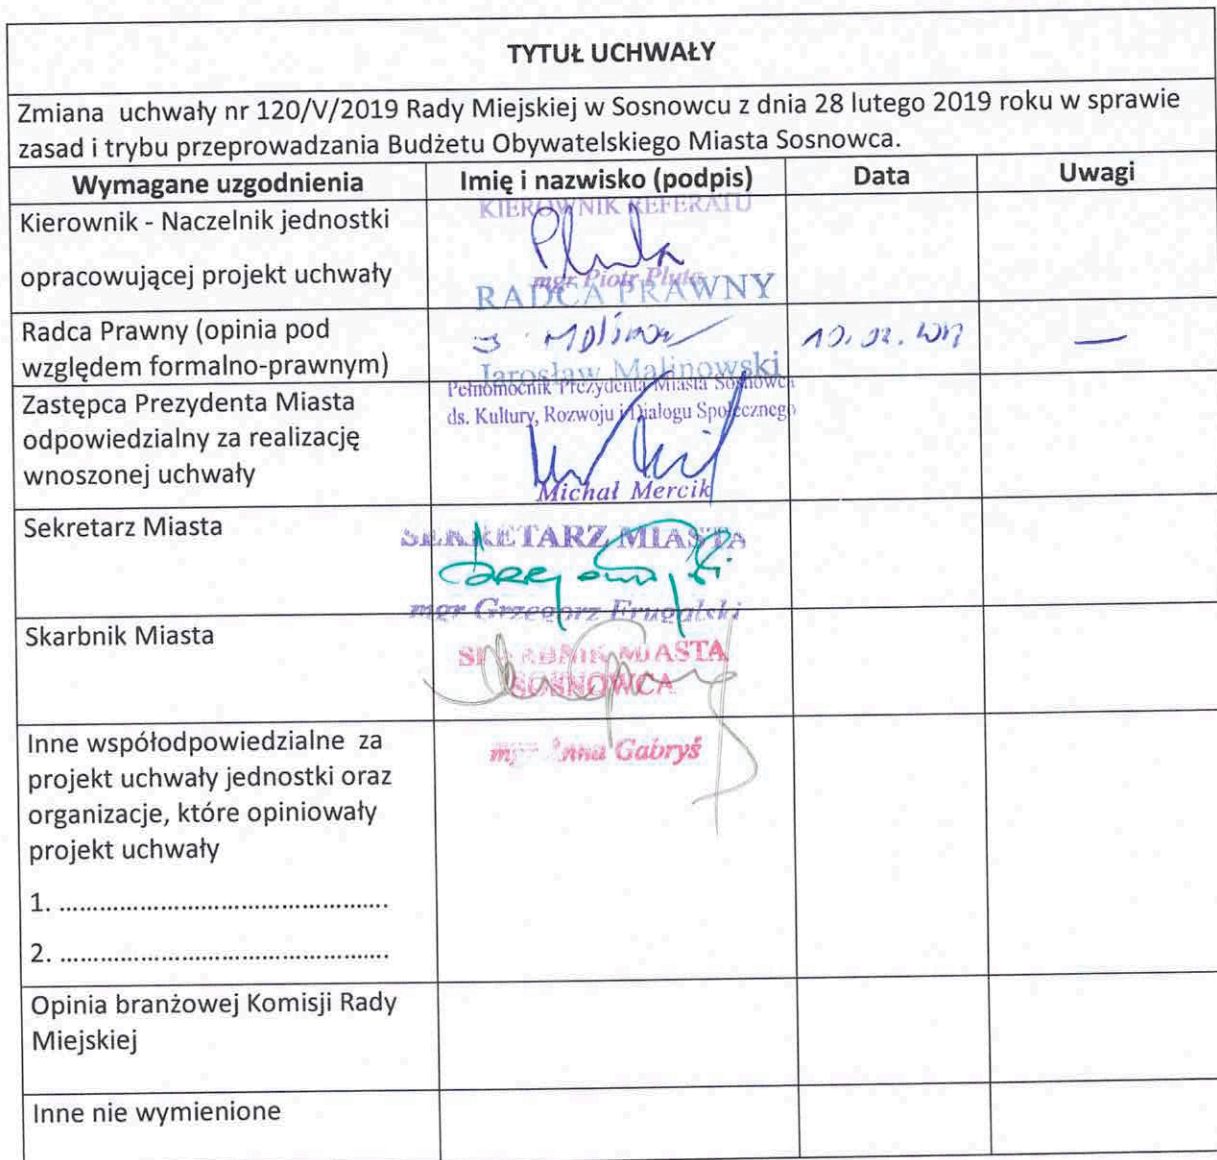 TYTUŁ UCHWAŁY
Zmiana uchwały nr 120/V/2019 Rady Miejskiej w Sosnowcu z dnia 28 lutego 2019 roku w sprawie
zasad i trybu przeprowadzania Budżetu Obywatelskiego Miasta Sosnowca.
Wymagane uzgodnienia Imię i nazwisko (podpis) Data Uwagi
Kierownik - Naczelnik jednostki
opracowującej projekt uchwały
KIEROWNIK REFERATU
Pluta
mgr Piotr Pluta
Radca Prawny (opinia pod
względem formalno-prawnym)
RADCA PRAWNY
Jarosław Malinowski
—
Zastępca Prezydenta Miasta
odpowiedzialny za realizację
wnoszonej uchwały
Pełnomocnik Prezydenta Miasta Sosnowca
ds. Kultury, Rozwoju i Dialogu Społecznego
Michał Mercik
Sekretarz Miasta
SEKRETARZ MIASTA
mgr Grzegorz Frugalski
Skarbnik Miasta
SKARBNIK MIASTA
SOSNOWCA
mgr Anna Gabryś
Inne współodpowiedzialne za
projekt uchwały jednostki oraz
organizacje, które opiniowały
projekt uchwały
1. ................................................
2. ................................................
Opinia branżowej Komisji Rady
Miejskiej
Inne nie wymienione